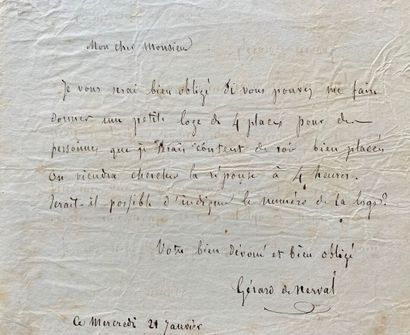 Mon cher Monsieur
Je vous serai bien obligé si vous pouvez me faire
donner une petite loge de 4 places pour des
personnes que je serais content de voir bien placées
On viendra chercher la réponse à 4 heures.
Serait-il possible d'indiquer le numéro de la loge?
Votre bien dévoué et bien obligé
Gérard de Nerval
Ce Mercredi 21 Janvier